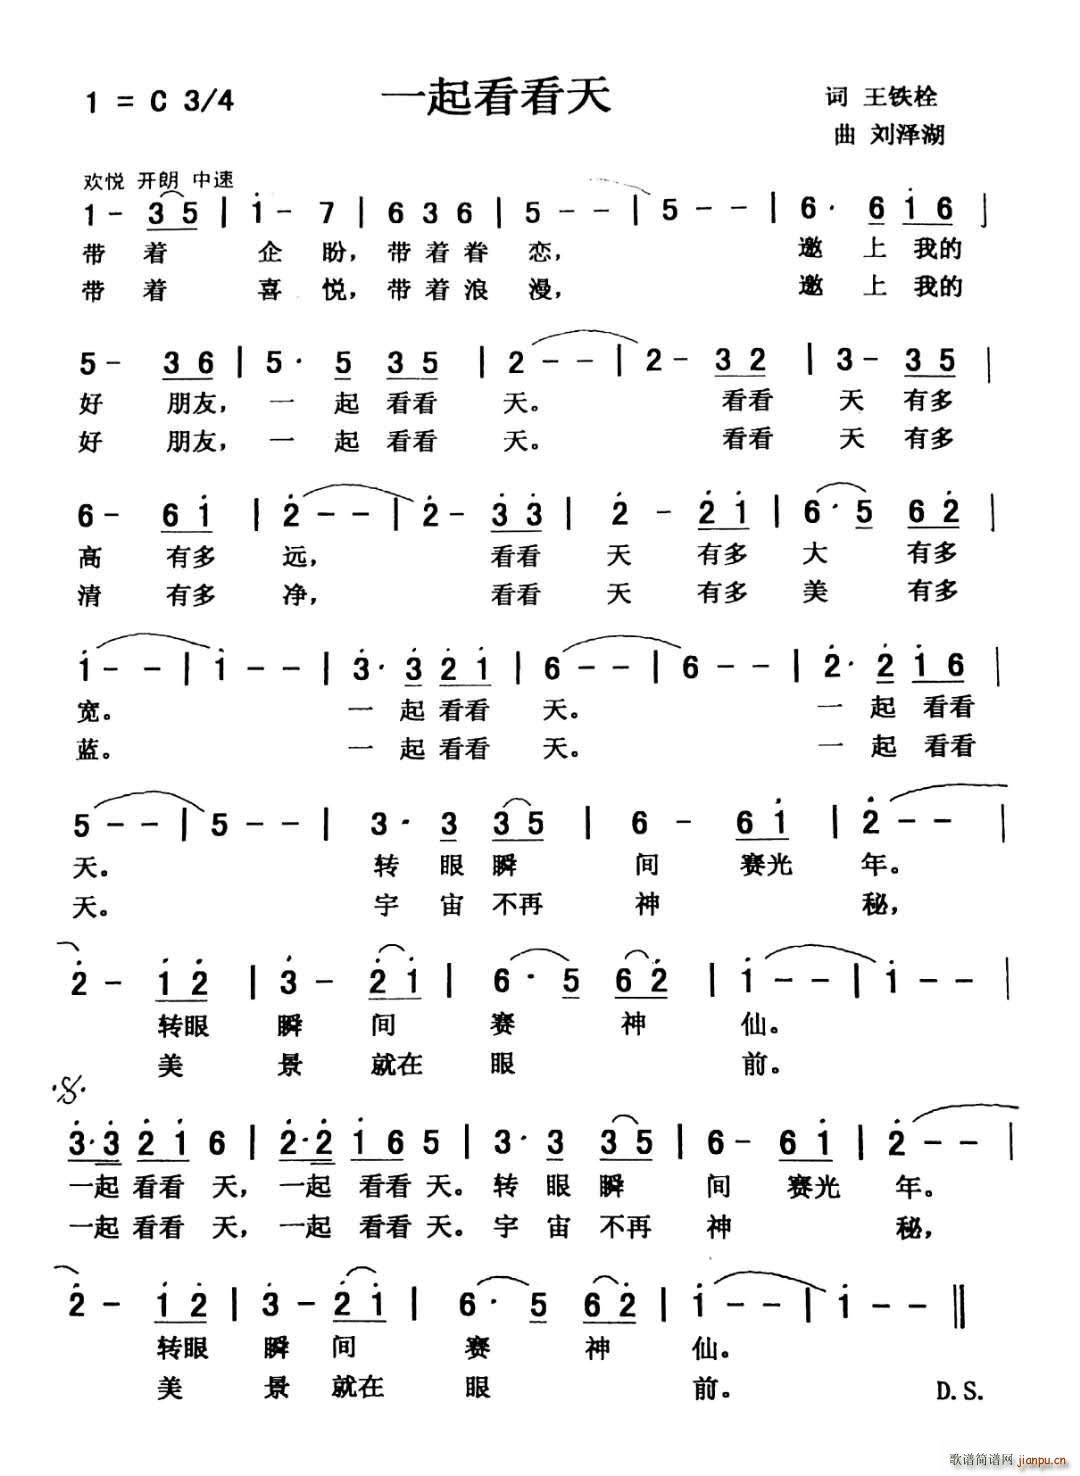 1 = C 3/4 一起看看天 词 王铁栓
曲 刘泽湖
欢悦 开朗 中速
1 - 3 5 | i - 7 | 6 3 6 | 5 - - | 5 - - | 6 · 6 i 6 |
带 着 企 盼, 带 着 眷 恋, 邀 上 我的
带 着 喜 悦, 带 着 浪 漫, 邀 上 我的
5 - 3 6 | 5 · 5 3 5 | 2 - - | 2 - 3 2 | 3 - 3 5 |
好 朋友, 一 起 看看 天。 看看 天 有多
好 朋友, 一 起 看看 天。 看看 天 有多
6 - 6 i | 2̇ - - | 2̇ - 3̇ 3̇ | 2̇ - 2̇ i | 6 · 5 6 2̇ |
高 有多 远, 看看 天 有多 大 有多
清 有多 净, 看看 天 有多 美 有多
i - - | i - - | 3̇ · 3̇ 2̇ i | 6 - - | 6 - - | 2̇ · 2̇ i 6 |
宽。 一 起 看看 天。 一 起 看看
蓝。 一 起 看看 天。 一 起 看看
5 - - | 5 - - | 3 · 3 3 5 | 6 - 6 i | 2̇ - - |
天。 转 眼 瞬 间 赛光 年。
天。 宇 宙 不再 神 秘,
2̇ - i 2̇ | 3̇ - 2̇ i | 6 · 5 6 2̇ | i - - | i - - |
转眼 瞬 间 赛 神 仙。
美 景 就在 眼 前。
3̇ · 3̇ 2̇ i 6 | 2̇ · 2̇ i 6 5 | 3 · 3 3 5 | 6 - 6 i | 2̇ - - |
一起 看看 天, 一起 看看 天。 转 眼 瞬 间 赛光 年。
一起 看看 天, 一起 看看 天。 宇 宙 不再 神 秘,
2̇ - i 2̇ | 3̇ - 2̇ i | 6 · 5 6 2̇ | i - - | i - - ‖
转眼 瞬 间 赛 神 仙。
美 景 就在 眼 前。 D.S.
歌谱简谱网 jianpu.cn